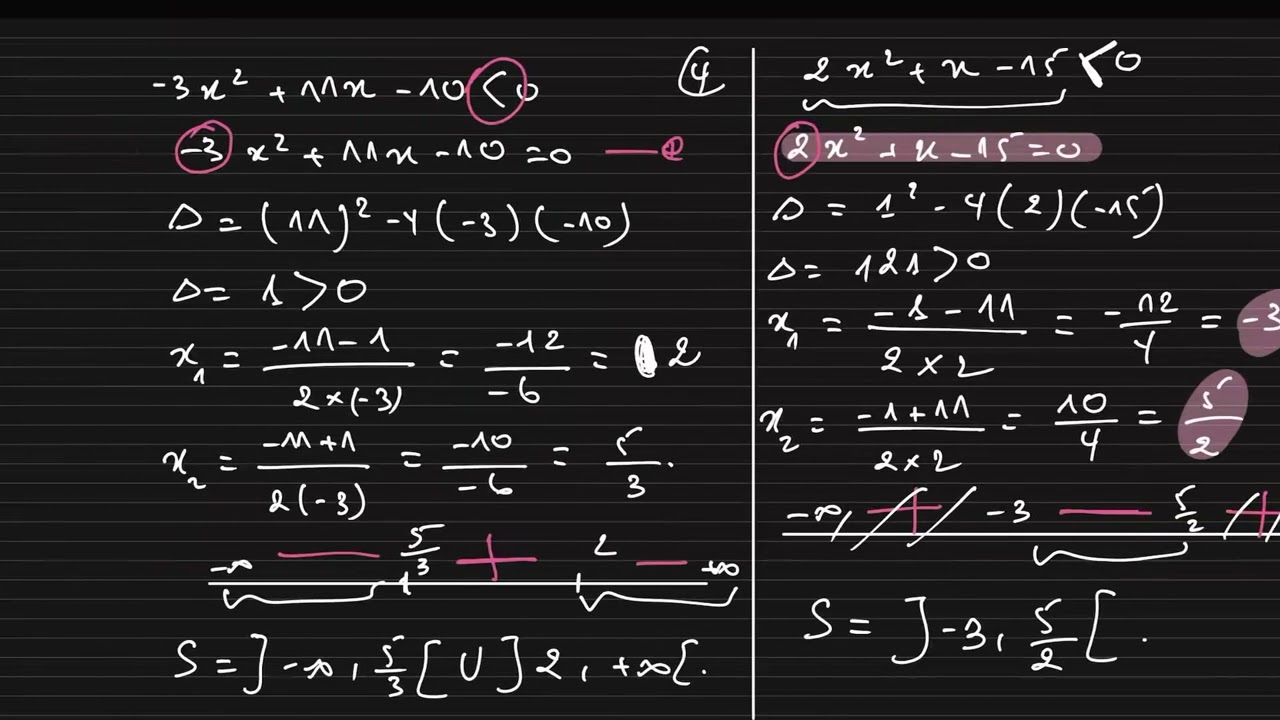 -3x² + 11x - 10 < 0
-3x² + 11x - 10 = 0
Δ = (11)² - 4(-3)(-10)
Δ = 1 > 0
x₁ = (-11-1)/(2×(-3)) = -12/-6 = 2
x₂ = (-11+1)/(2(-3)) = -10/-6 = 5/3.
-∞ — 5/3 + 2 — +∞
S = ]-∞, 5/3[ ∪ ]2, +∞[.
4
2x² + x - 15 < 0
2x² + x - 15 = 0
Δ = 1² - 4(2)(-15)
Δ = 121 > 0
x₁ = (-1-11)/(2×2) = -12/4 = -3
x₂ = (-1+11)/(2×2) = 10/4 = 5/2
-∞ + -3 — 5/2 +
S = ]-3, 5/2[.